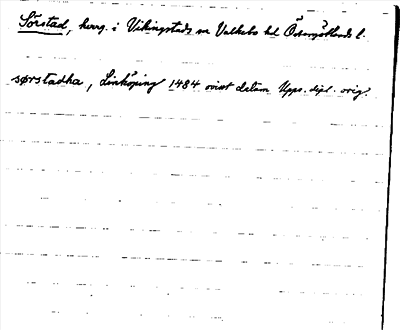 Sörstad, herrg. i Vikingstads sn Valkebo hd Östergötlands l.
sørstadha, Linköping 1484 visst datum Upps. dipl. orig.